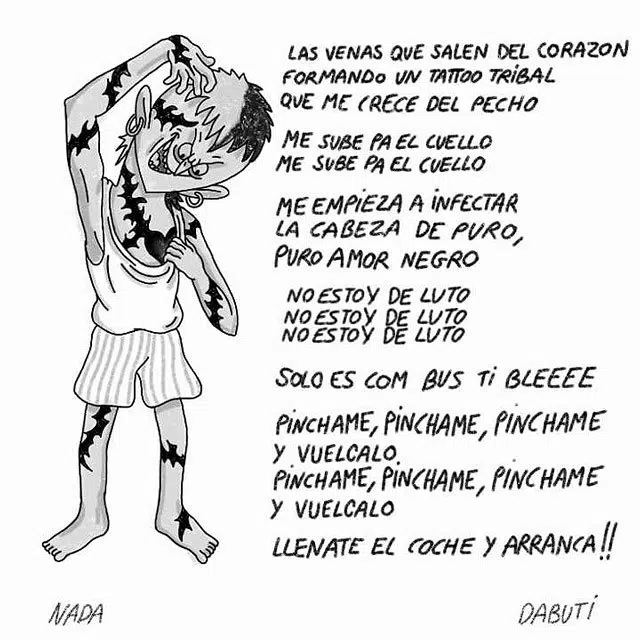 LAS VENAS QUE SALEN DEL CORAZON
FORMANDO UN TATTOO TRIBAL
QUE ME CRECE DEL PECHO
ME SUBE PA EL CUELLO
ME SUBE PA EL CUELLO
ME EMPIEZA A INFECTAR
LA CABEZA DE PURO,
PURO AMOR NEGRO
NO ESTOY DE LUTO
NO ESTOY DE LUTO
NO ESTOY DE LUTO
SOLO ES COM BUS TI BLEEEE
PINCHAME, PINCHAME, PINCHAME
Y VUELCALO.
PINCHAME, PINCHAME, PINCHAME
Y VUELCALO
LLENATE EL COCHE Y ARRANCA!!
NADA
DABUTI